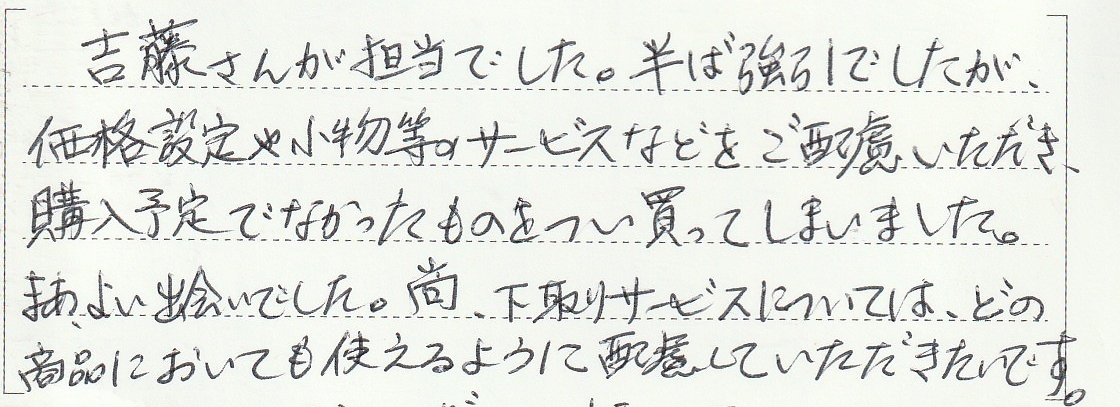 吉藤さんが担当でした。半ば強引でしたが、
価格設定や小物等のサービスなどをご配慮いただき、
購入予定でなかったものをつい買ってしまいました。
まあ、よい出会いでした。尚、下取りサービスについては、どの
商品においても使えるように配慮していただきたいです。